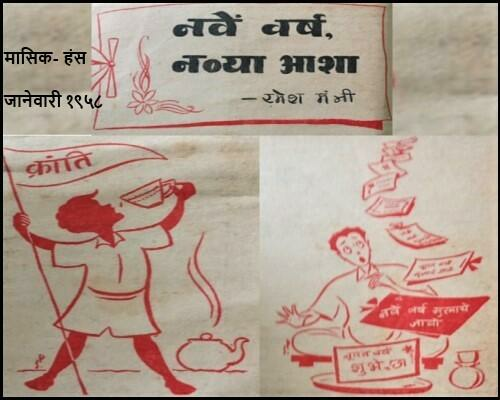 नवें वर्ष,
मासिक- हंस
नव्या आशा
जानेवारी १९५८
— रमेश मंत्री
क्रांति
नवें वर्ष सुखाचे
जावो
नूतन वर्ष
शुभेच्छा